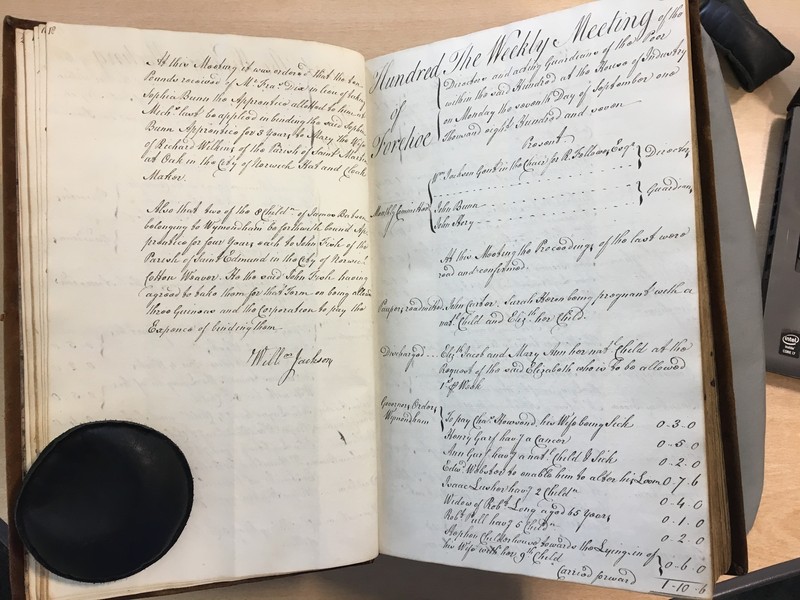 At this Meeting it was ordered that the ten
Pounds received of Mr. Fras. Dix in lieu of taking
Sophia Bunn the Apprentice allotted to him at
Michs. last be applied in binding the said Sophia
Bunn Apprentice for 3 Years to Mary the Wife
of Richard Wilkins of the Parish of Saint Martin
at Oak in the City of Norwich Hat and Cloak
Maker.
Also that two of the 8 Childn. of James Barber
belonging to Wymondham be forthwith bound Ap-
prentice for four Years each to John Fish of the
Parish of Saint Edmund in the City of Norwich
Cotton Weaver. He the said John Fish having
agreed to take them for that Term on being allowed
three Guineas and the Corporation to pay the
Expence of binding them
Willm. Jackson
Hundred of Forehoe
The Weekly Meeting of the
Directors and acting Guardians of the Poor
within the said Hundred at the House of Industry
on Monday the seventh Day of September one
thousand eight Hundred and seven
Present
Wm. Jackson Gent in the Chair for R. Fellowes Esqr.
Directors
Monthly Committee
John Bunn
John Story
Guardians
At this Meeting the Proceedings of the last were
read and confirmed.
Paupers readmitted John Carter. Sarah Heron being pregnant with a
natl. Child and Elizth. her Child.
Discharged Elizth. Jacob and Mary Ann her natl. Child at the
Request of the said Elizabeth who is to be allowed
1s. ⅌ Week
Governors Orders
Wymondham
To pay Chas. Howsond his Wife being Sick 0-3-0
Henry Garf havg. a Cancer 0-5-0
Ann Garf havg. a natl. Child & Sick 0-2-0
Edwd. Webster to enable him to alter his Loom 0-7-6
Isaac Lusher havg. 2 Childn. 0-4-0
Widow of Robt. Long aged 65 Years 0-1-0
Robt. Pull havg. 5 Childn. 0-2-0
Stephen Childerhouse towards the Lying-in of
his Wife with her 9th. Child 0-6-0
Carried forward 1-10-6
intel